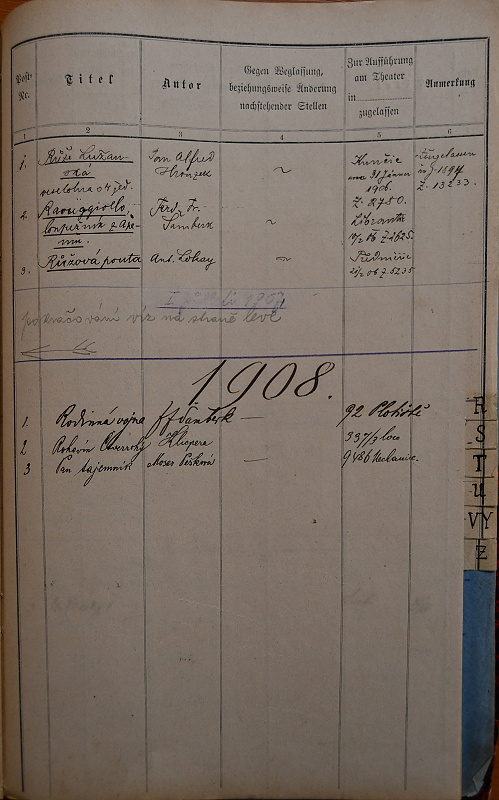 Post-
Nr.
Titel
Autor
Gegen Weglassung,
beziehungsweise Änderung
nachstehender Stellen
Zur Aufführung
am Theater
in
zugelassen
Anmerkung
1
2
3
4
5
6
1.
Růže Lužan-
ská
veselohra o 4 jed.
Jan Alfred
~
Kunčic
31 Jänner
1906.
Z. 2750.
Zugelassen
in J. 1894
Z. 13233.
2.
Ravuggiollo,
Ferd. Fr.
Šamberk
~
Librantic
Z 1625.
3.
Růžová pouta
Ant. Lokay
~
Předměřic
06 Z. 5235
pokračování viz na straně levé
1908.
1.
Rodinná vojna
FF Šamberk
—
92 Plotiště
2
Rohovín Čtverrohý
Klicpera
337/9
3
Pan tajemník
Moser Pešková
—
9486 Nechanice.
R
S
T
U
VY
Z